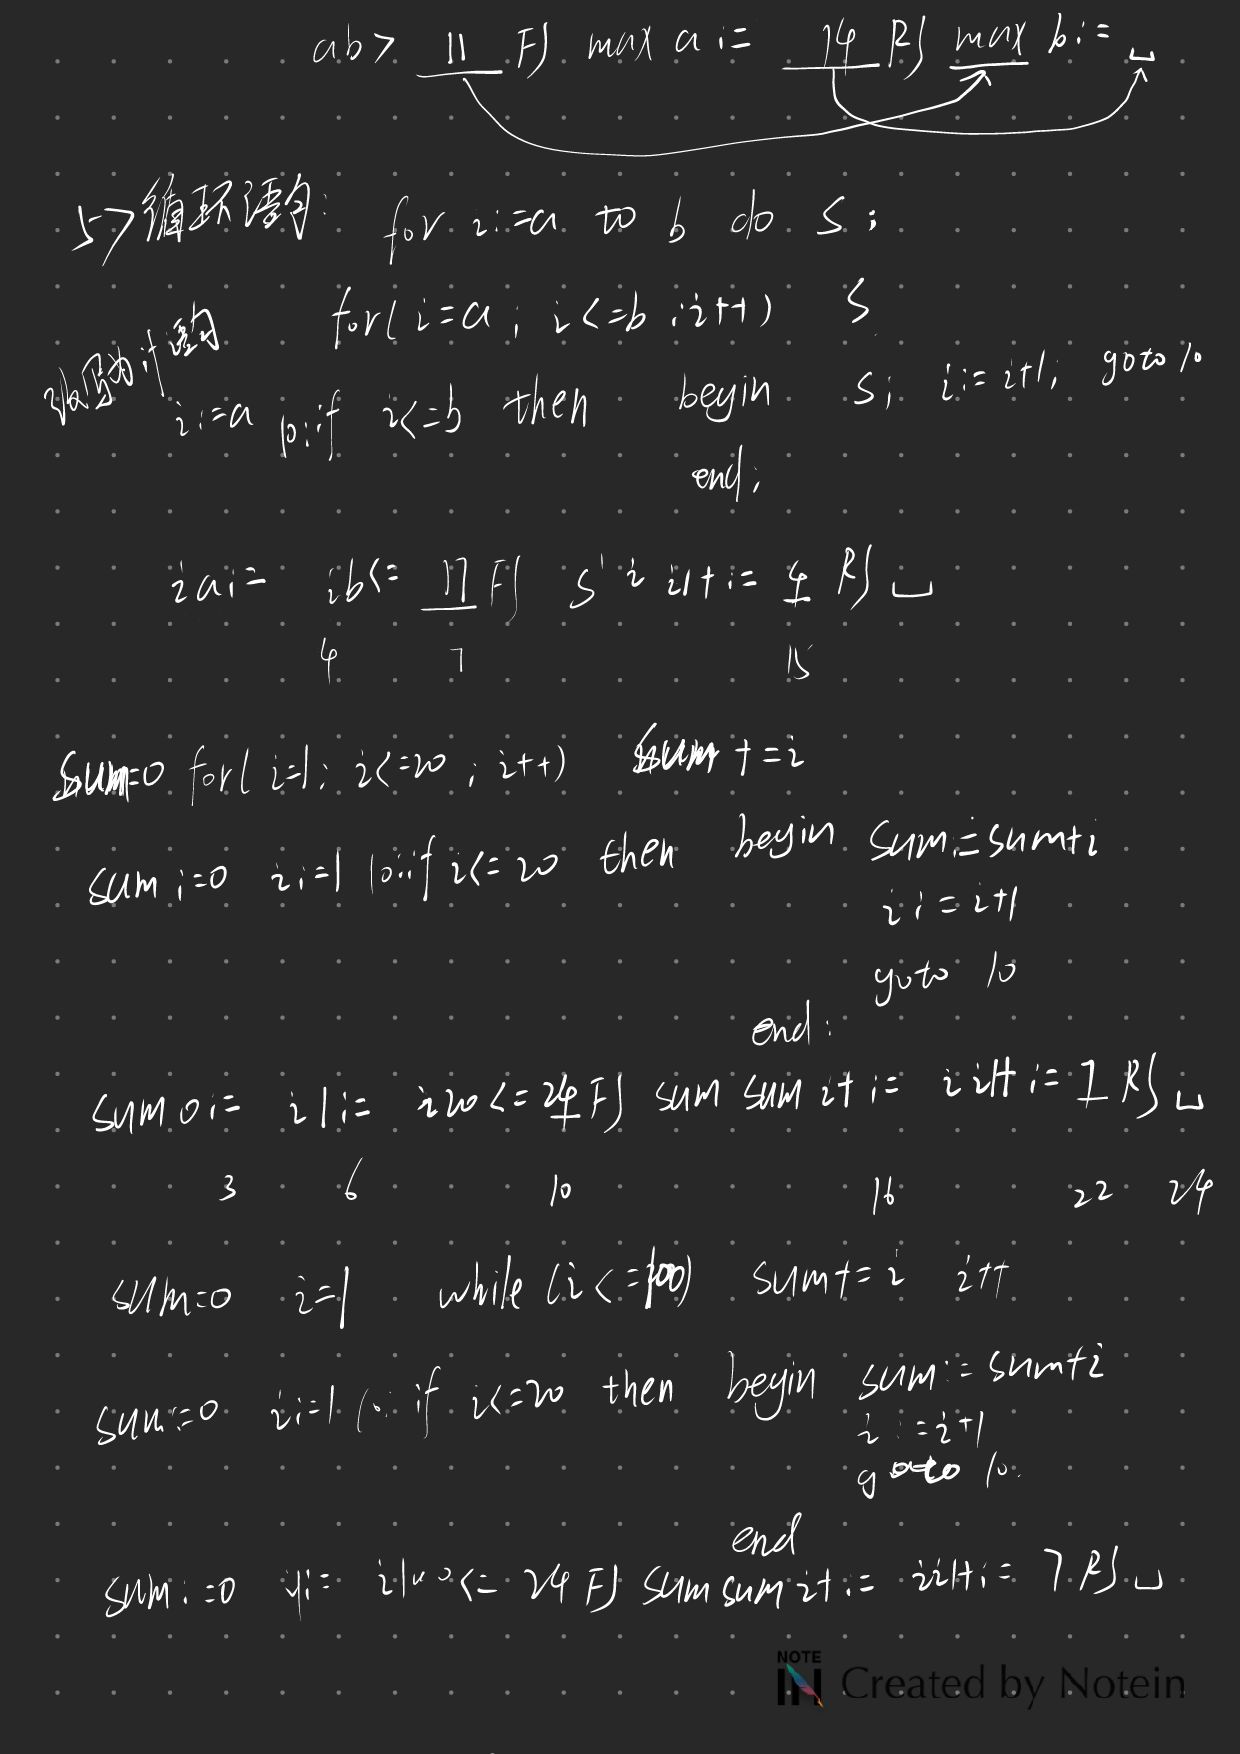 ab> 11 FJ max a := 14 RJ max b := ␣
5> 循环语句: for i:=a to b do S;
for(i=a; i<=b; i++) S
改写为 if 语句
i:=a 10:if i<=b then begin S; i:=i+1; goto 10
end;
i a := i b <= 17 FJ S' i i1+ := 4 RJ ␣
4 7 15
sum=0 for(i=1; i<=20; i++) sum+=i
sum:=0 i:=1 10:if i<=20 then begin sum:=sum+i
i:=i+1
goto 10
end:
sum 0 := i 1 := i 20 <= 24 FJ sum sum i + := i i1+ := 7 RJ ␣
3 6 10 16 22 24
sum=0 i=1 while (i<=100) sum+=i i++
sum:=0 i:=1 10: if i<=20 then begin sum:=sum+i
i:=i+1
goto 10.
end
sum:=0 := i100<= 24 FJ sum sum i+:= i i1+:= 7 RJ ␣
NOTE IN Created by Notein